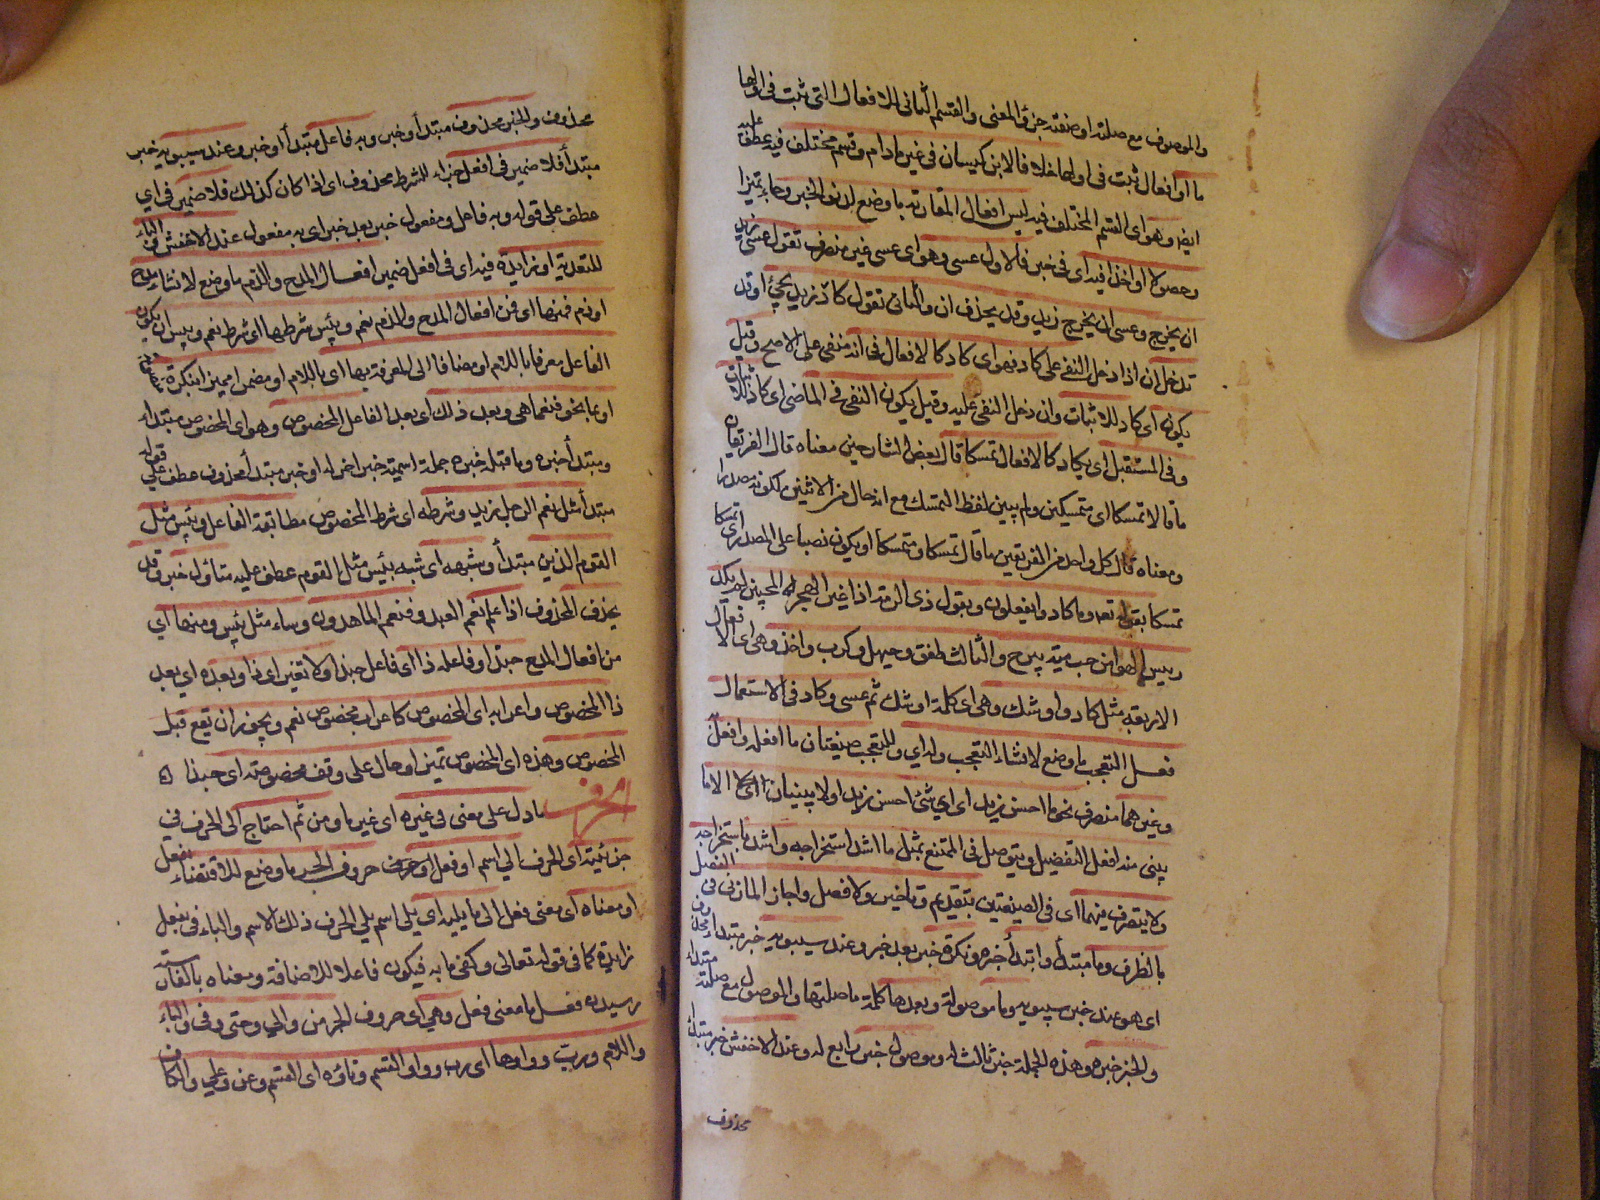 والموصوف مع صلته او صفته جزؤ المعنى والقسم الثانى الافعال التى ثبت فى اولها
ما او افعال ثبت فى اولها خلا قال ابن كيسان فى غير ما دام وقسم مختلف فيه عطف عليه
ايضا وهو اى القسم المختلف فيه ليس افعال المقاربة ما وضع لدنو الخبر رجاء تميز
او حصولا او اخذا فيه اى فى خبر فالاول عسى وهو اى عسى غير متصرف تقول عسى زيد
ان يخرج وعسى ان يخرج زيد وقد يحذف ان والثانى تقول كاد زيد يجئ او قد
تدخل ان اذا دخل النفى على كاد فهو اى كاد كالافعال فى انه منفى على الاصح وقيل
يكون اى كاد للاثبات وان دخل النفى عليه وقيل يكون النفى فى الماضى اى كاد للاثبات
وفى المستقبل اى يكاد كالافعال تمسكا قال بعض الشارحين معناه قال الفريقان
ما قالا تمسكا اى متمسكين ولم يبين لفظ التمسك مع انه حال من الاثنين لكونه مصدرا
ومعناه قال كل واحد من الفريقين ما قال تمسكا ومتمسكا او يكون نصبا على المصدر اى تمسكا
تمسكا بقوله تعه وما كادوا يفعلون وبقول ذى الرمة اذا غير الهجر المحبين لم يكد
رسيس الهوى من حب مية يبرح والثالث طفق وجعل وكرب واخذ وهى اى الافعال
الاربعة مثل كاد واوشك وهى اى كلمة اوشك ثم عسى وكاد فى الاستعمال
فعل التعجب ما وضع لانشاء التعجب وله اى وللتعجب صيغتان ما افعله وافعل به
وغير هما متصرف نحو ما احسن زيدا اى اى شئ احسن زيدا ولا يبنيان الا مما
يبنى منه افعل التفضيل ويتوصل فى الممتنع بمثل ما اشد استخراجه واشد باستخراجه
ولا يتصرف فيهما اى فى الصيغتين بتقديم وتاخير ولا فصل واجاز المازنى فى الفصل
بالظرف وما مبتدأ وابتدأ خبره ونكرة خبر بعد خبر وعند سيبويه خبر مبتداء محذوف
اى هو عند خبر سيبويه وما موصولة وبعدها كلمة ما صلتها والموصول مع صلته مبتداء
والخبر خبره وهذه الجملة خبر ثالث له وموصول خبر رابع له وعند الاخفش خبر مبتداء
محذوف
محذوف والخبر محذوف مبتدأ وخبر وبه فاعل مبتدأ او خبر وعند سيبويه خبر
مبتدأ فلا ضمير فى افعل جزاء للشرط محذوف اى اذا كان كذلك فلا ضمير فى اى
عطف على قوله وبه فاعل ومفعول خبر بعد خبر اى به مفعول عند الاخفش والباء
للتعدية او زايدة فيه اى فى افعل ضمير افعال المدح والذم ما وضع لانشاء مدح
او ذم فمنها اى فمن افعال المدح والذم نعم وبئس شرطها اى شرط نعم وبيس ان يكون
الفاعل معرفا باللام او مضافا الى المعرفة بها اى باللام او مضمرا مميزا بنكرة
او بما نحو فنعما هى وبعد ذلك اى بعد الفاعل المخصوص وهو اى المخصوص مبتداء
ومبتدأ خبره وما قبله خبره جملة اسمية خبر اخر له او خبر مبتدأ محذوف عطف على قوله
مبتدأ مثل نعم الرجل زيد وشرطه اى شرط المخصوص مطابقة الفاعل وبئس مثل
القوم الذين مبتدأ وشبهه اى شبه بئيس مثل القوم عطف عليه متاول خبر وقد
يحذف المخذوف اذا علم نعم العبد وفنعم الماهدون وساء مثل بئس ومنها اى
من افعال المدح حبذا وفاعله ذا اى فاعل حبذا ولا تغير اى ذا وبعده اى بعد
ذا المخصوص واعرابه اى المخصوص كاعراب مخصوص نعم ويجوز ان تقع قبل
المخصوص وهذه اى المخصوص تميز او حال على وفق مخصوصه اى حبذا
الحرف ما دل على معنى فى غيره اى غير ما ومن ثم احتاج الى الحرف فى
جزئيته اى الحرف الى اسم او فعل او حرف حروف الجر ما وضع للافضاء بفعل
او معناه اى معنى فعل الى ما يليه اى يلى اسم يلى الحرف ذلك الاسم والباء فى بفعل
زايدة كما فى قوله تعالى وكفى ما به فيكون فاعلا للاضافة ومعناه
رسيده فعل ما معنى فعل وهى اى حروف الجر من والى وحتى وفى والباء
واللام ورب وواوها اى رب وواو القسم وتاؤه اى القسم وعن وعلى والكاف